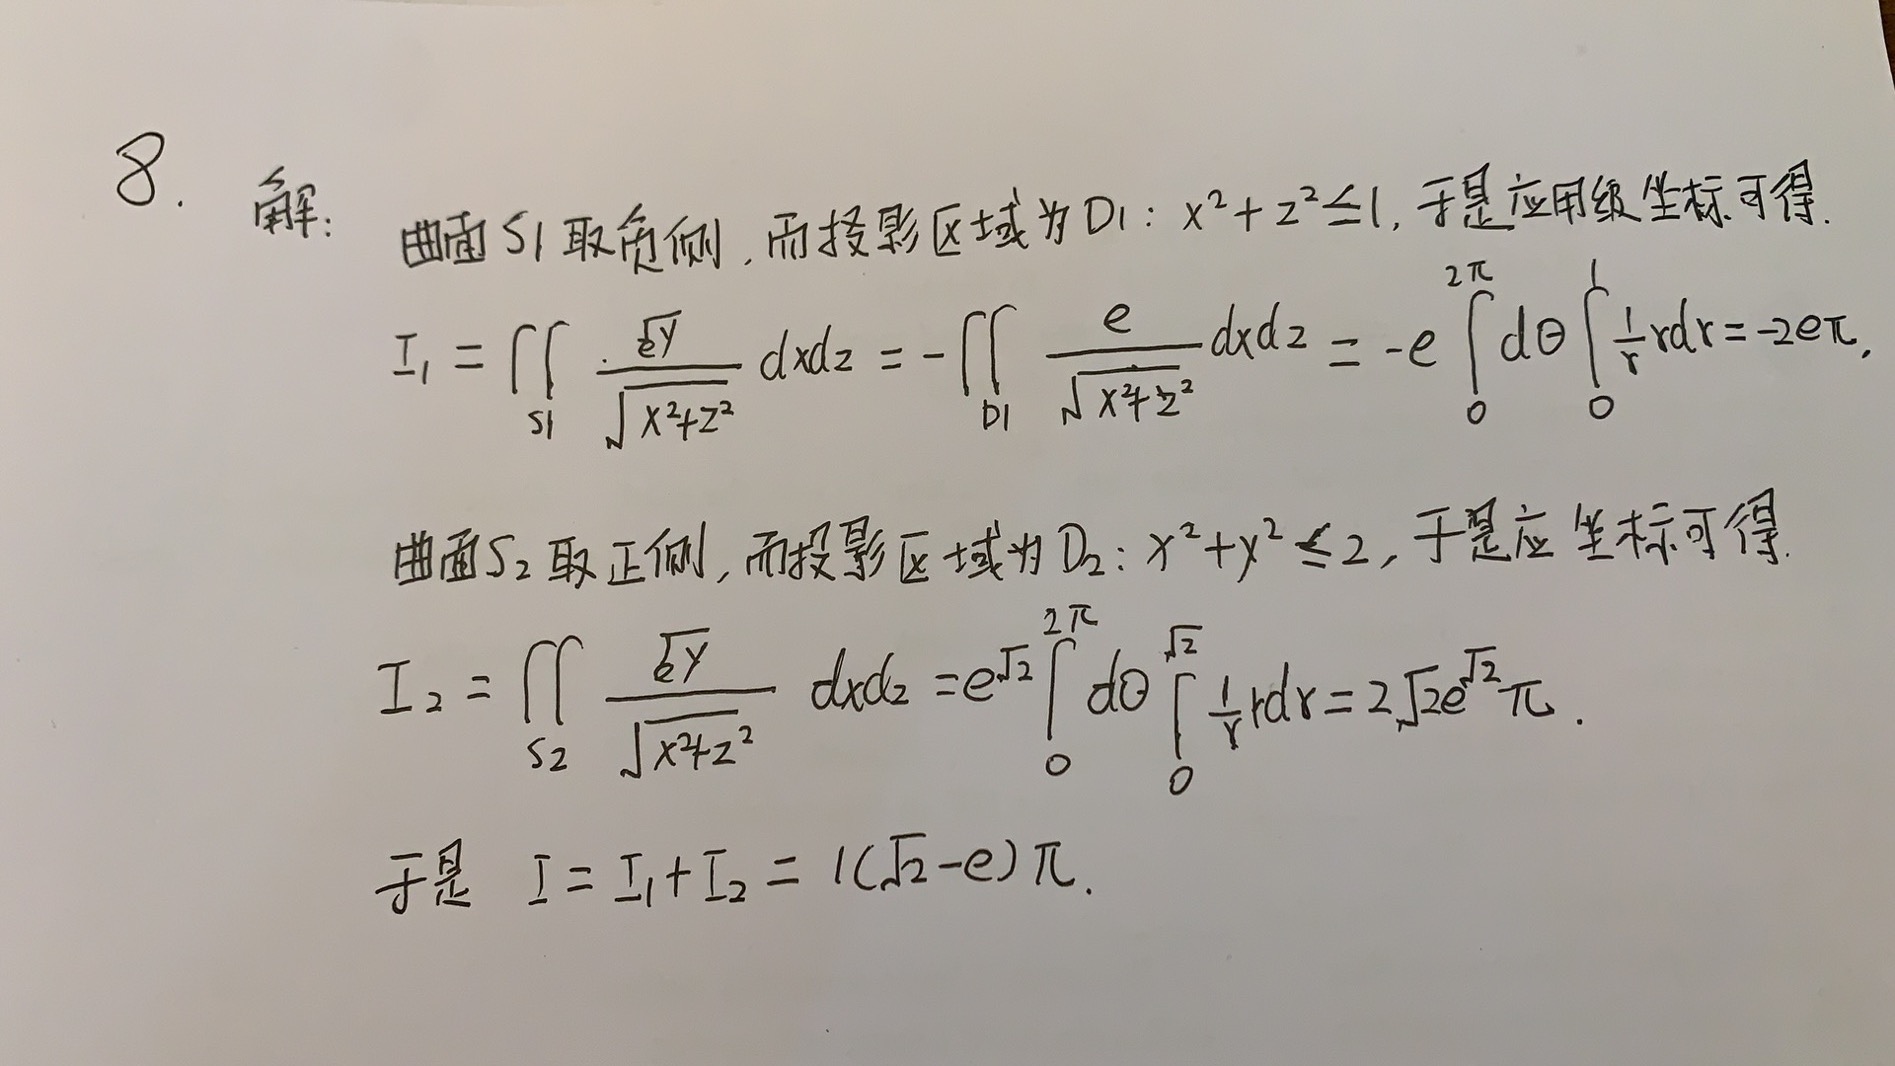 8. 解: 曲面S1取负侧,而投影区域为D1: x²+z²≤1,于是应用级坐标可得.
I₁ = ∬_{S1} \frac{e^{\sqrt{y}}}{\sqrt{x²+z²}} dxdz = -∬_{D1} \frac{e}{\sqrt{x²+z²}} dxdz = -e ∫_0^{2π} dθ ∫_0^1 \frac{1}{r} rdr = -2eπ,
曲面S₂取正侧,而投影区域为D₂: x²+y²≤2,于是应 坐标可得.
I₂ = ∬_{S2} \frac{e^{\sqrt{y}}}{\sqrt{x²+z²}} dxdz = e^{\sqrt{2}} ∫_0^{2π} dθ ∫_0^{\sqrt{2}} \frac{1}{r} rdr = 2\sqrt{2}e^{\sqrt{2}}π.
于是 I = I₁+I₂ = 1(√2-e)π.